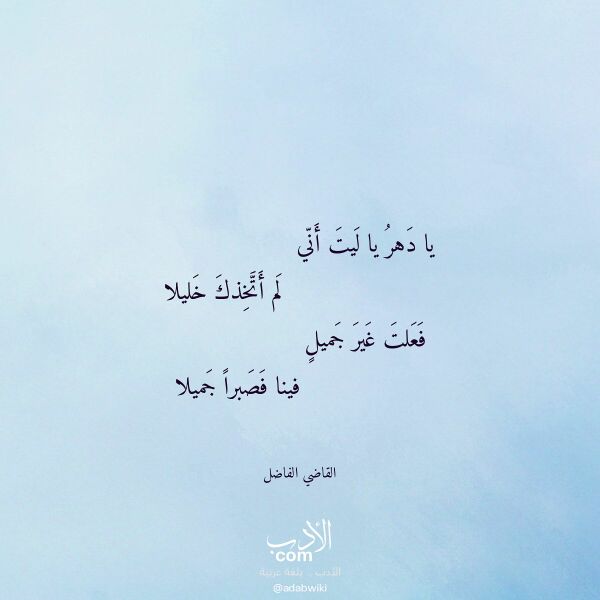 يا دَهرُ يا لَيتَ أَنّي
لَم أَتَّخِذكَ خَليلا
فَعَلتَ غَيرَ جَميلٍ
فينا فَصَبراً جَميلا
القاضي الفاضل
الأدب
com
الأدب .. بلغة عربية
@adabwiki